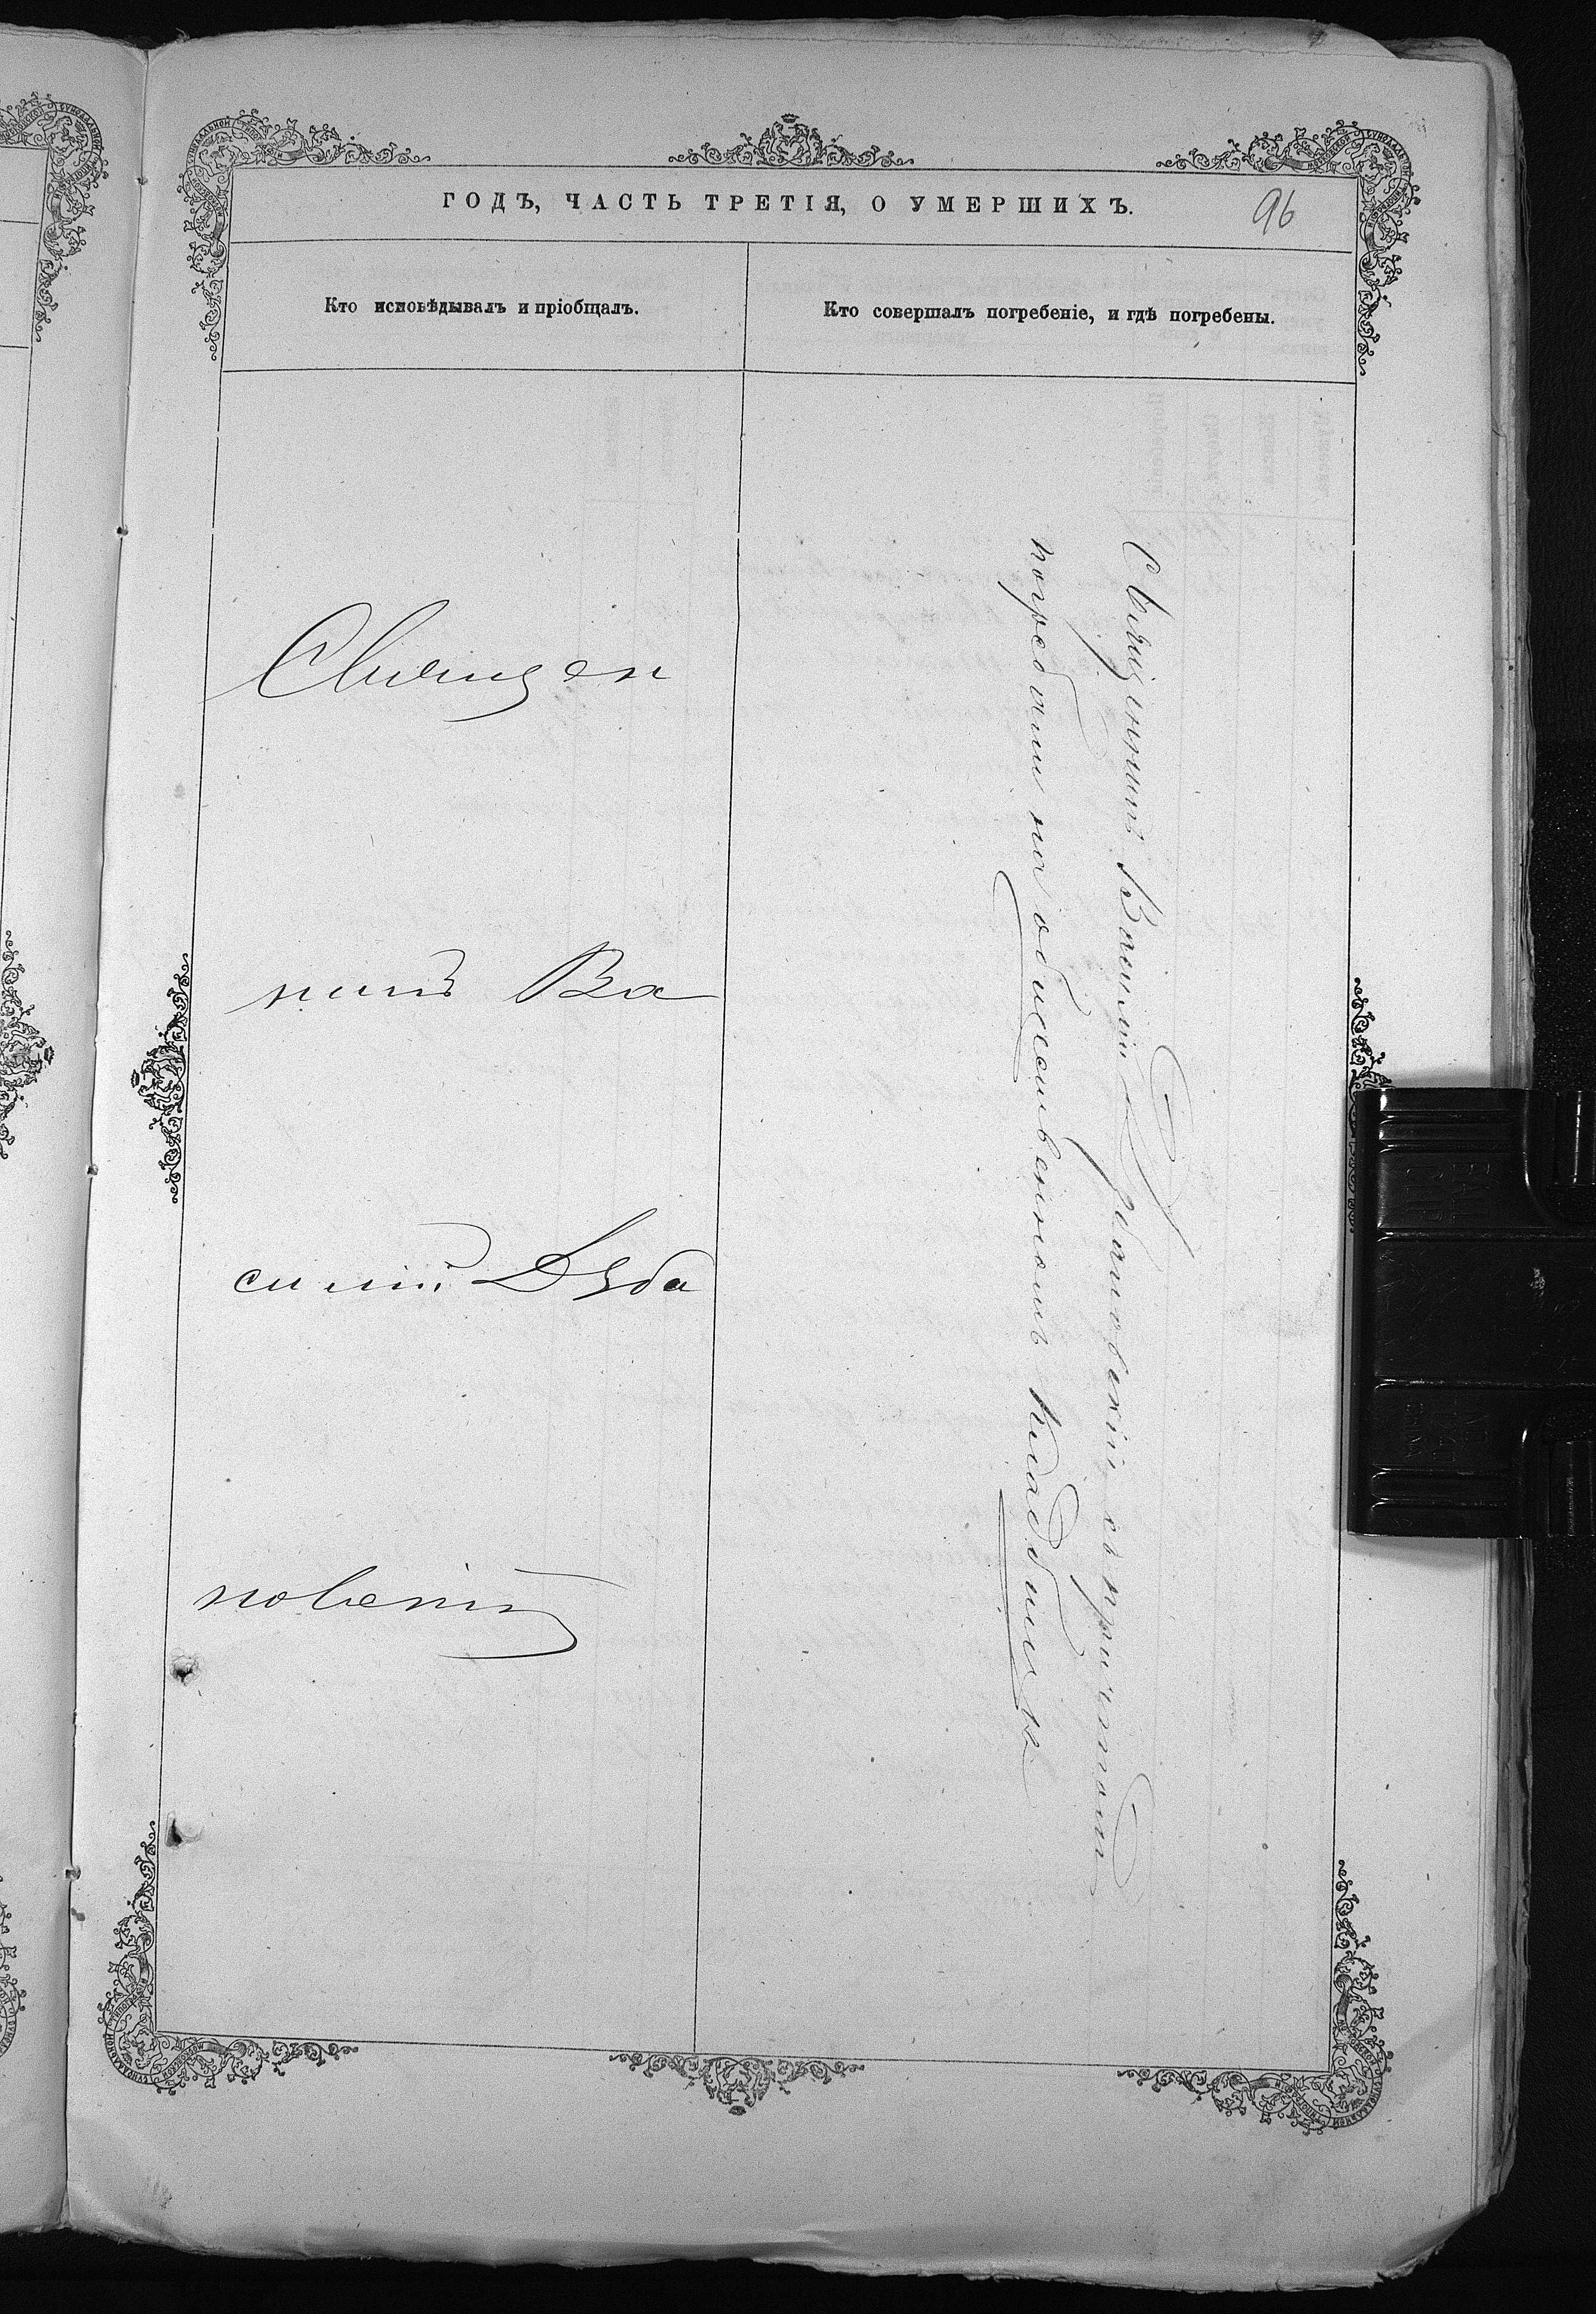 ГОДЪ, ЧАСТЬ ТРЕТІЯ, О УМЕРШИХЪ.
96
Кто исповѣдывалъ и пріобщалъ.
Кто совершалъ погребеніе, и гдѣ погребены.
Священ
никъ Ва
силій Дуба
новскій
Священникъ Василій Дубановскій съ причтомъ
погребены на общественномъ кладбищѣ